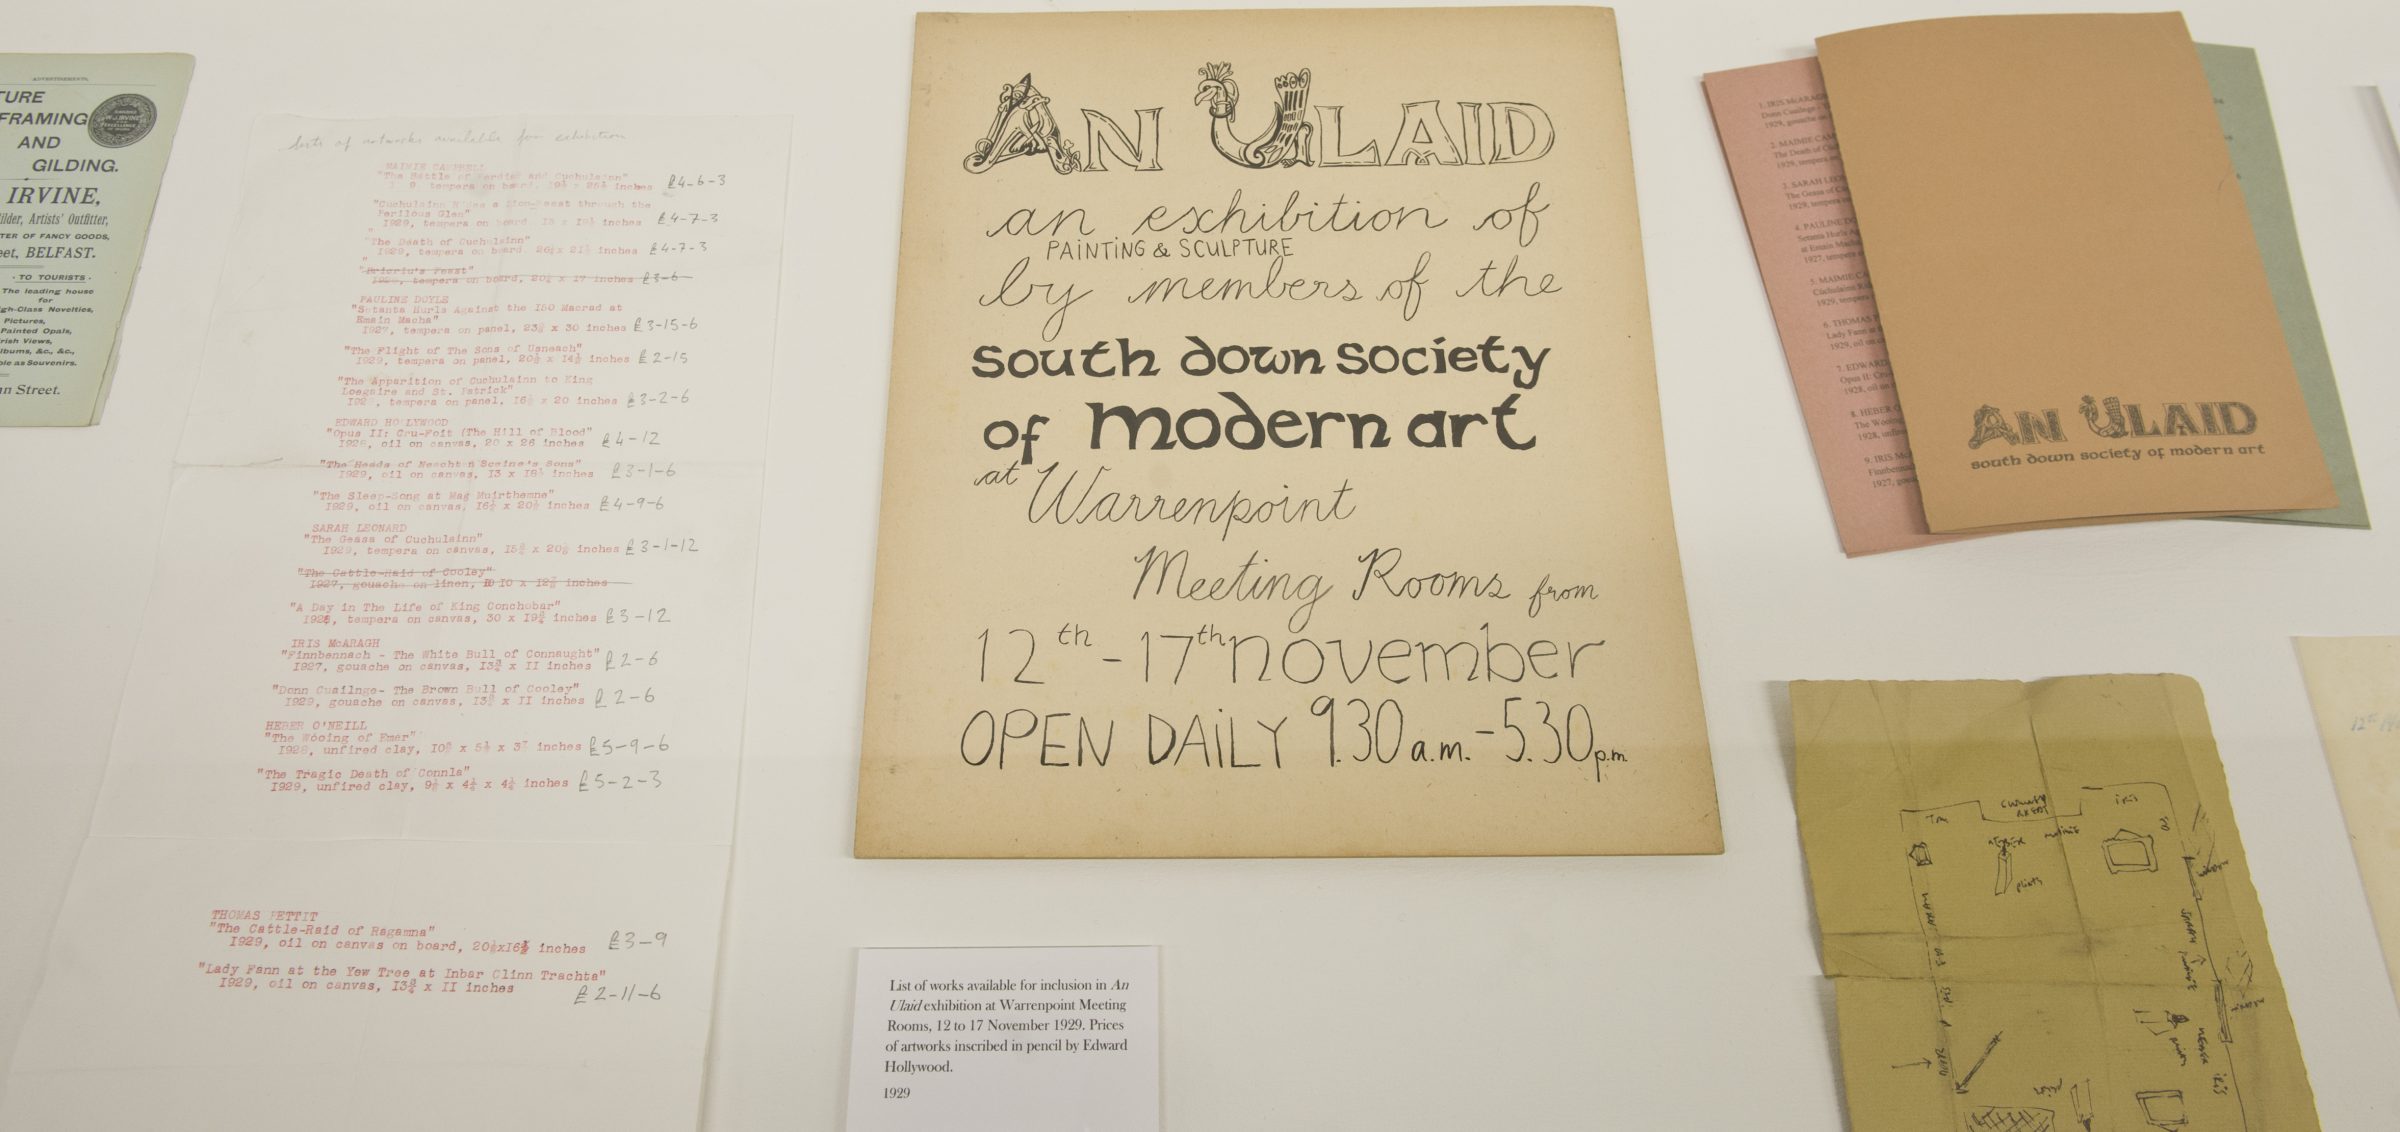 ADVERTISEMENTS,
TURE
FRAMING
AND
GILDING.
IRVINE,
ilder, Artists' Outfitter,
TER OF FANCY GOODS,
eet, BELFAST.
· TO TOURISTS ·
The leading house
for
gh-Class Novelties,
Pictures,
Painted Opals,
rish Views,
lbums, &c., &c.,
ble as Souvenirs.
nn Street.
lists of artworks available for exhibition
MAIMIE CAMPBELL
"The Battle of Ferdia and Cuchulainn"
tempera on board, inches £4-6-3
"Cuchulainn Rides a through the
Perilous Glen"
1929, tempera on board. inches £4-7-3
"The Death of Cuchulainn"
1929, tempera on board. inches £4-7-3
"Bricriu's Feast"
tempera on board, inches £3-6-
PAULINE DOYLE
"Setanta Hurls Against the I50 Macrad at
Emain Macha"
I927, tempera on panel, x 30 inches £3-15-6
"The Flight of The Sons of Usneach"
I929, tempera on panel, inches £2-15
"The Apparition of Cuchulainn to King
Loegaire and St. Patrick"
tempera on panel, x 20 inches £3-2-6
EDWARD HOLLYWOOD
"Opus II: Cru-Foit (The Hill of Blood"
I928, oil on canvas, 20 x 26 inches £4-12
"The Heads of Neachtan Sceine's Sons"
I929, oil on canvas, inches £3-1-6
"The Sleep-Song at Mag Muirthemne"
I929, oil on canvas, inches £4-9-6
SARAH LEONARD
"The Geasa of Cuchulainn"
I929, tempera on canvas, inches £3-1-12
"The Cattle-Raid of Cooley"
I927, gouache on linen, inches
"A Day in The Life of King Conchobar"
tempera on canvas, inches £3-12
IRIS McARAGH
"Finnbennach - The White Bull of Connaught"
I927, gouache on canvas, x II inches £2-6
"Donn Cuailnge- The Brown Bull of Cooley"
I929, gouache on canvas, x II inches £2-6
HEBER O'NEILL
"The Wooing of Emer"
I928, unfired clay, inches £5-9-6
"The Tragic Death of Connla"
I929, unfired clay, inches £5-2-3
THOMAS PETTIT
"The Cattle-Raid of Ragamna"
I929, oil on canvas on board, inches £3-9
"Lady Fann at the Yew Tree at Inbar Clinn Trachta"
I929, oil on canvas, x II inches
£2-11-6
AN ULAID
an exhibition of
PAINTING & SCULPTURE
by members of the
south down society
of modern art
at Warrenpoint
Meeting Rooms from
12th - 17th november
OPEN DAILY 9.30 a.m. - 5.30 p.m
List of works available for inclusion in An
Ulaid exhibition at Warrenpoint Meeting
Rooms, 12 to 17 November 1929. Prices
of artworks inscribed in pencil by Edward
Hollywood.
1929
1. IRIS McARAGH
Donn Cuailnge - T
1929, gouache on
2. MAIMIE CAM
The Death of Cu
1929, tempera on
3. SARAH LEON
The Geasa of C
1929, tempera
4. PAULINE D
Setanta Hurls Ag
at Emain Macha
1927, tempera
5. MAIMIE CA
Cuchulainn Ri
1929, tempera
6. THOMAS
Lady Fann at
1929, oil on c
7. EDWARD
Opus II: Cru
1928, oil on
8. HEBER O
The Wooing
1928, unfire
9. IRIS Mc
Finnbennac
1927, goua
AN ULAID
south down society of modern art
IRIS
plinth
iris